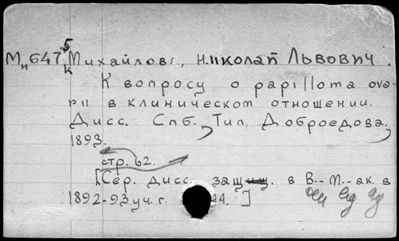 Мн 647 5/к Михайлов, Николай Львович.
К вопросу о papilloma ova-
rii в клиническом отношении.
Дисс. Спб. Тип. Доброедова.
1893.
стр. 62.
[Сер. дисс. защищ. в В.-М.-ак. в
1892-93 уч. г. 44.]